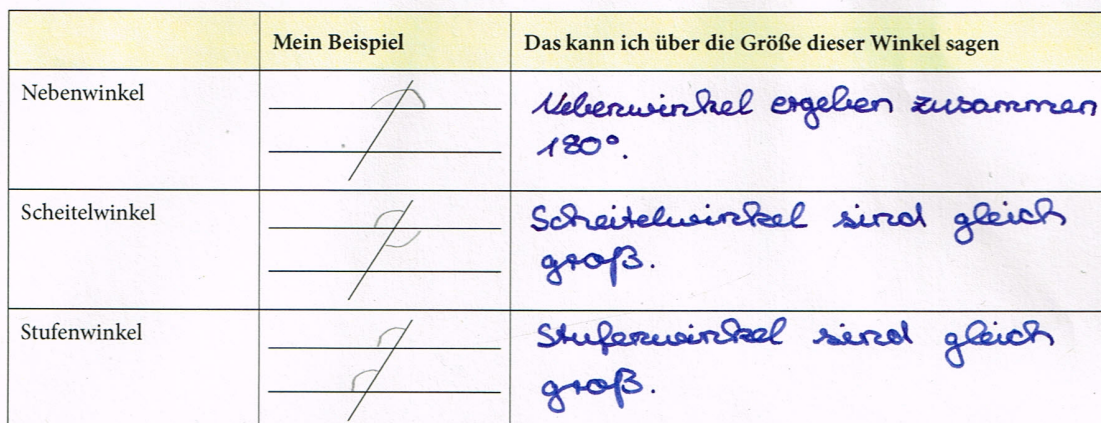 Mein Beispiel
Das kann ich über die Größe dieser Winkel sagen
Nebenwinkel
Nebenwinkel ergeben zusammen
180°.
Scheitelwinkel
Scheitelwinkel sind gleich
groß.
Stufenwinkel
Stufenwinkel sind gleich
groß.